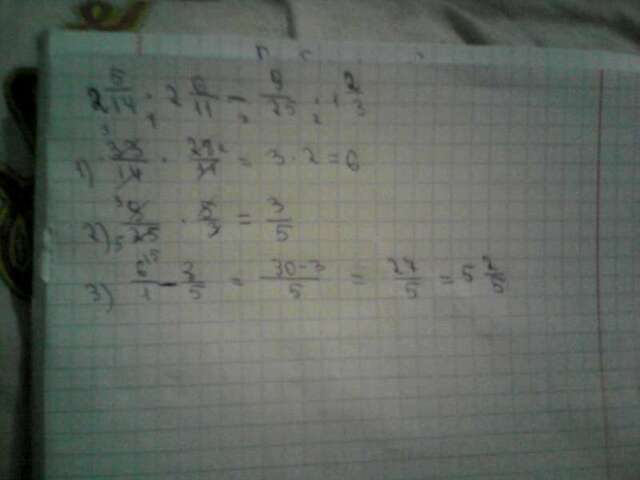 2 5/14 · 2 6/11 - 9/25 : 1 2/3
1) 33/14 · 28/11 = 3 · 2 = 6
2) 9/25 · 5/3 = 3/5
3) 6/1 - 3/5 = 30-3/5 = 27/5 = 5 2/5